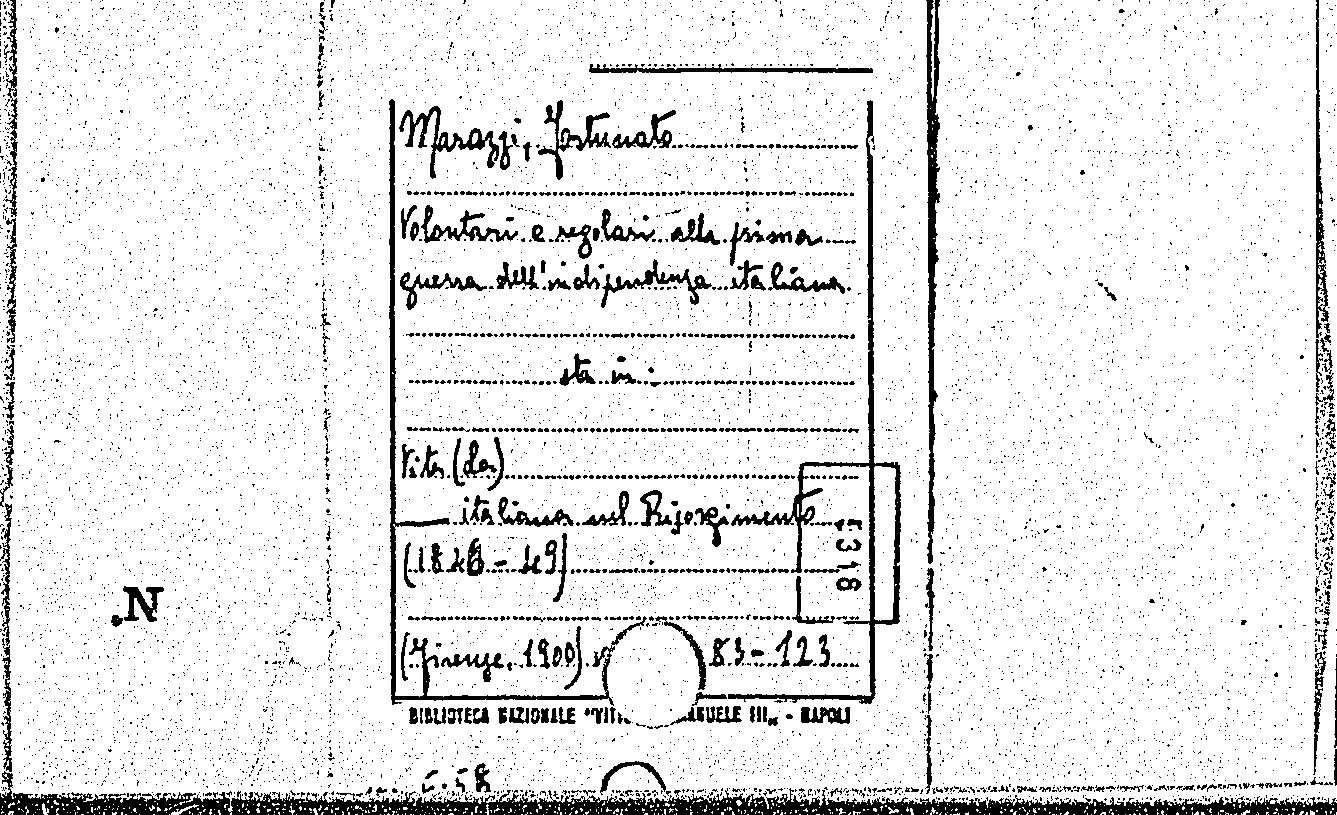 Marazzi, Fortunato
Volontari e regolari alla prima
guerra dell'indipendenza italiana.
sta in:
Vita (La)
—— italiana nel Risorgimento
(1846 - 49)
(Firenze, 1900) 83 - 123
BIBLIOTECA NAZIONALE "VITT ANUELE III„ - NAPOLI
5318
.N